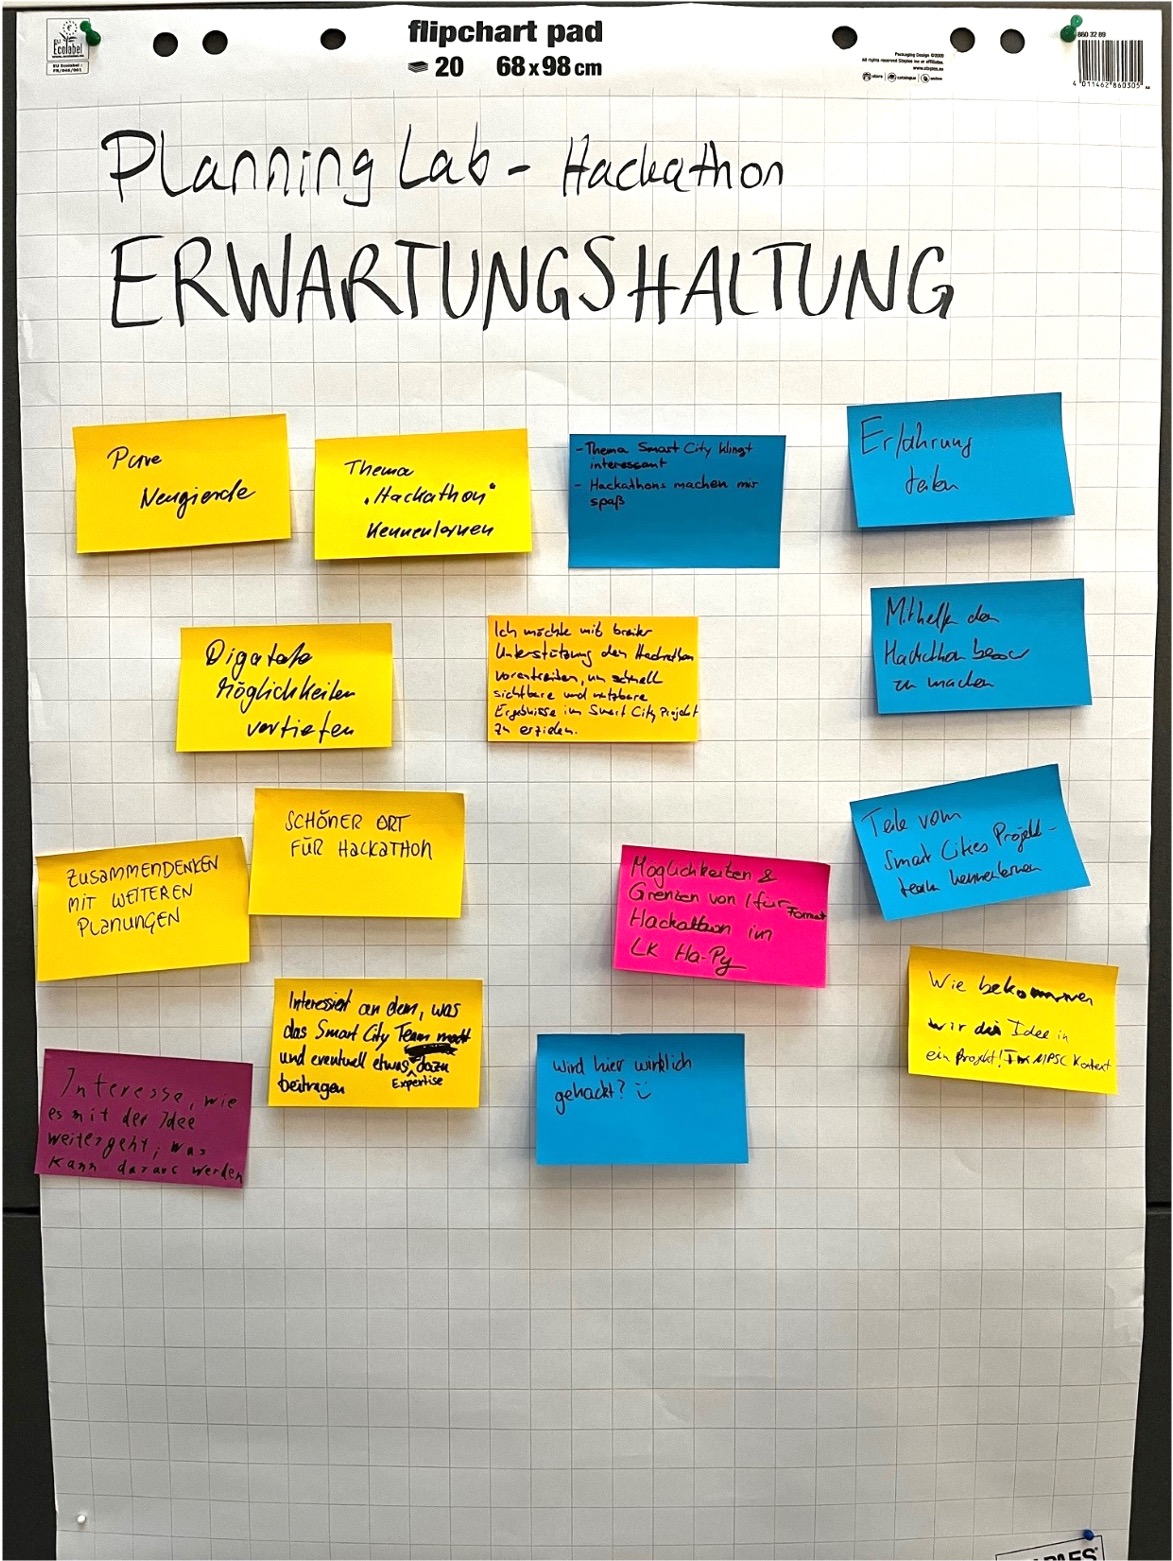 Ecolabel
flipchart pad
20 68 x 98 cm
4 011462 860305
Planning Lab - Hackathon
ERWARTUNGSHALTUNG
Pure
Neugierde
Thema
"Hackathon"
kennenlernen
- Thema Smart City klingt
interessant
- Hackathons machen mir
spaß
Erfahrung
teilen
Digitale
Möglichkeiten
vertiefen
Ich möchte mit breiter
Unterstützung den Hackathon
vorantreiben, um schnell
sichtbare und nutzbare
Ergebnisse im Smart City Projekt
zu erzielen.
Mithelfen den
Hackathon besser
zu machen
SCHÖNER ORT
FÜR HACKATHON
ZUSAMMENDENKEN
MIT WEITEREN
PLANUNGEN
Möglichkeiten &
Grenzen von / für Format
Hackathon im
LK Ha-Py
Teile vom
Smart Cities Projekt-
team kennenlernen
Interessiert an dem, was
das Smart City Team macht
und eventuell etwas dazu
Expertise
beitragen
Wie bekommen
wir die Idee in
ein Projekt! Im MPSC Kontext
Interesse, wie
es mit der Idee
weitergeht, was
kann daraus werden
Wird hier wirklich
gehackt?